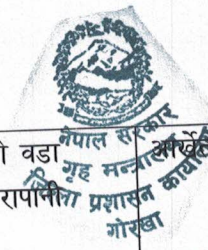 नेपाल सरकार
गृह मन्त्रालय
जिल्ला प्रशासन कार्यालय
गोरखा
वडा
रापानी